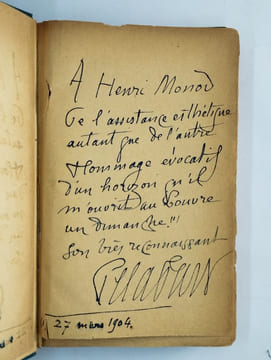 A Henri Monod
De l'assistance esthétique
autant que de l'autre
Hommage évocatif
d'un horizon qu'il
m'ouvrit au Louvre
un dimanche!!!
Son très reconnaissant
27 mars 1904.